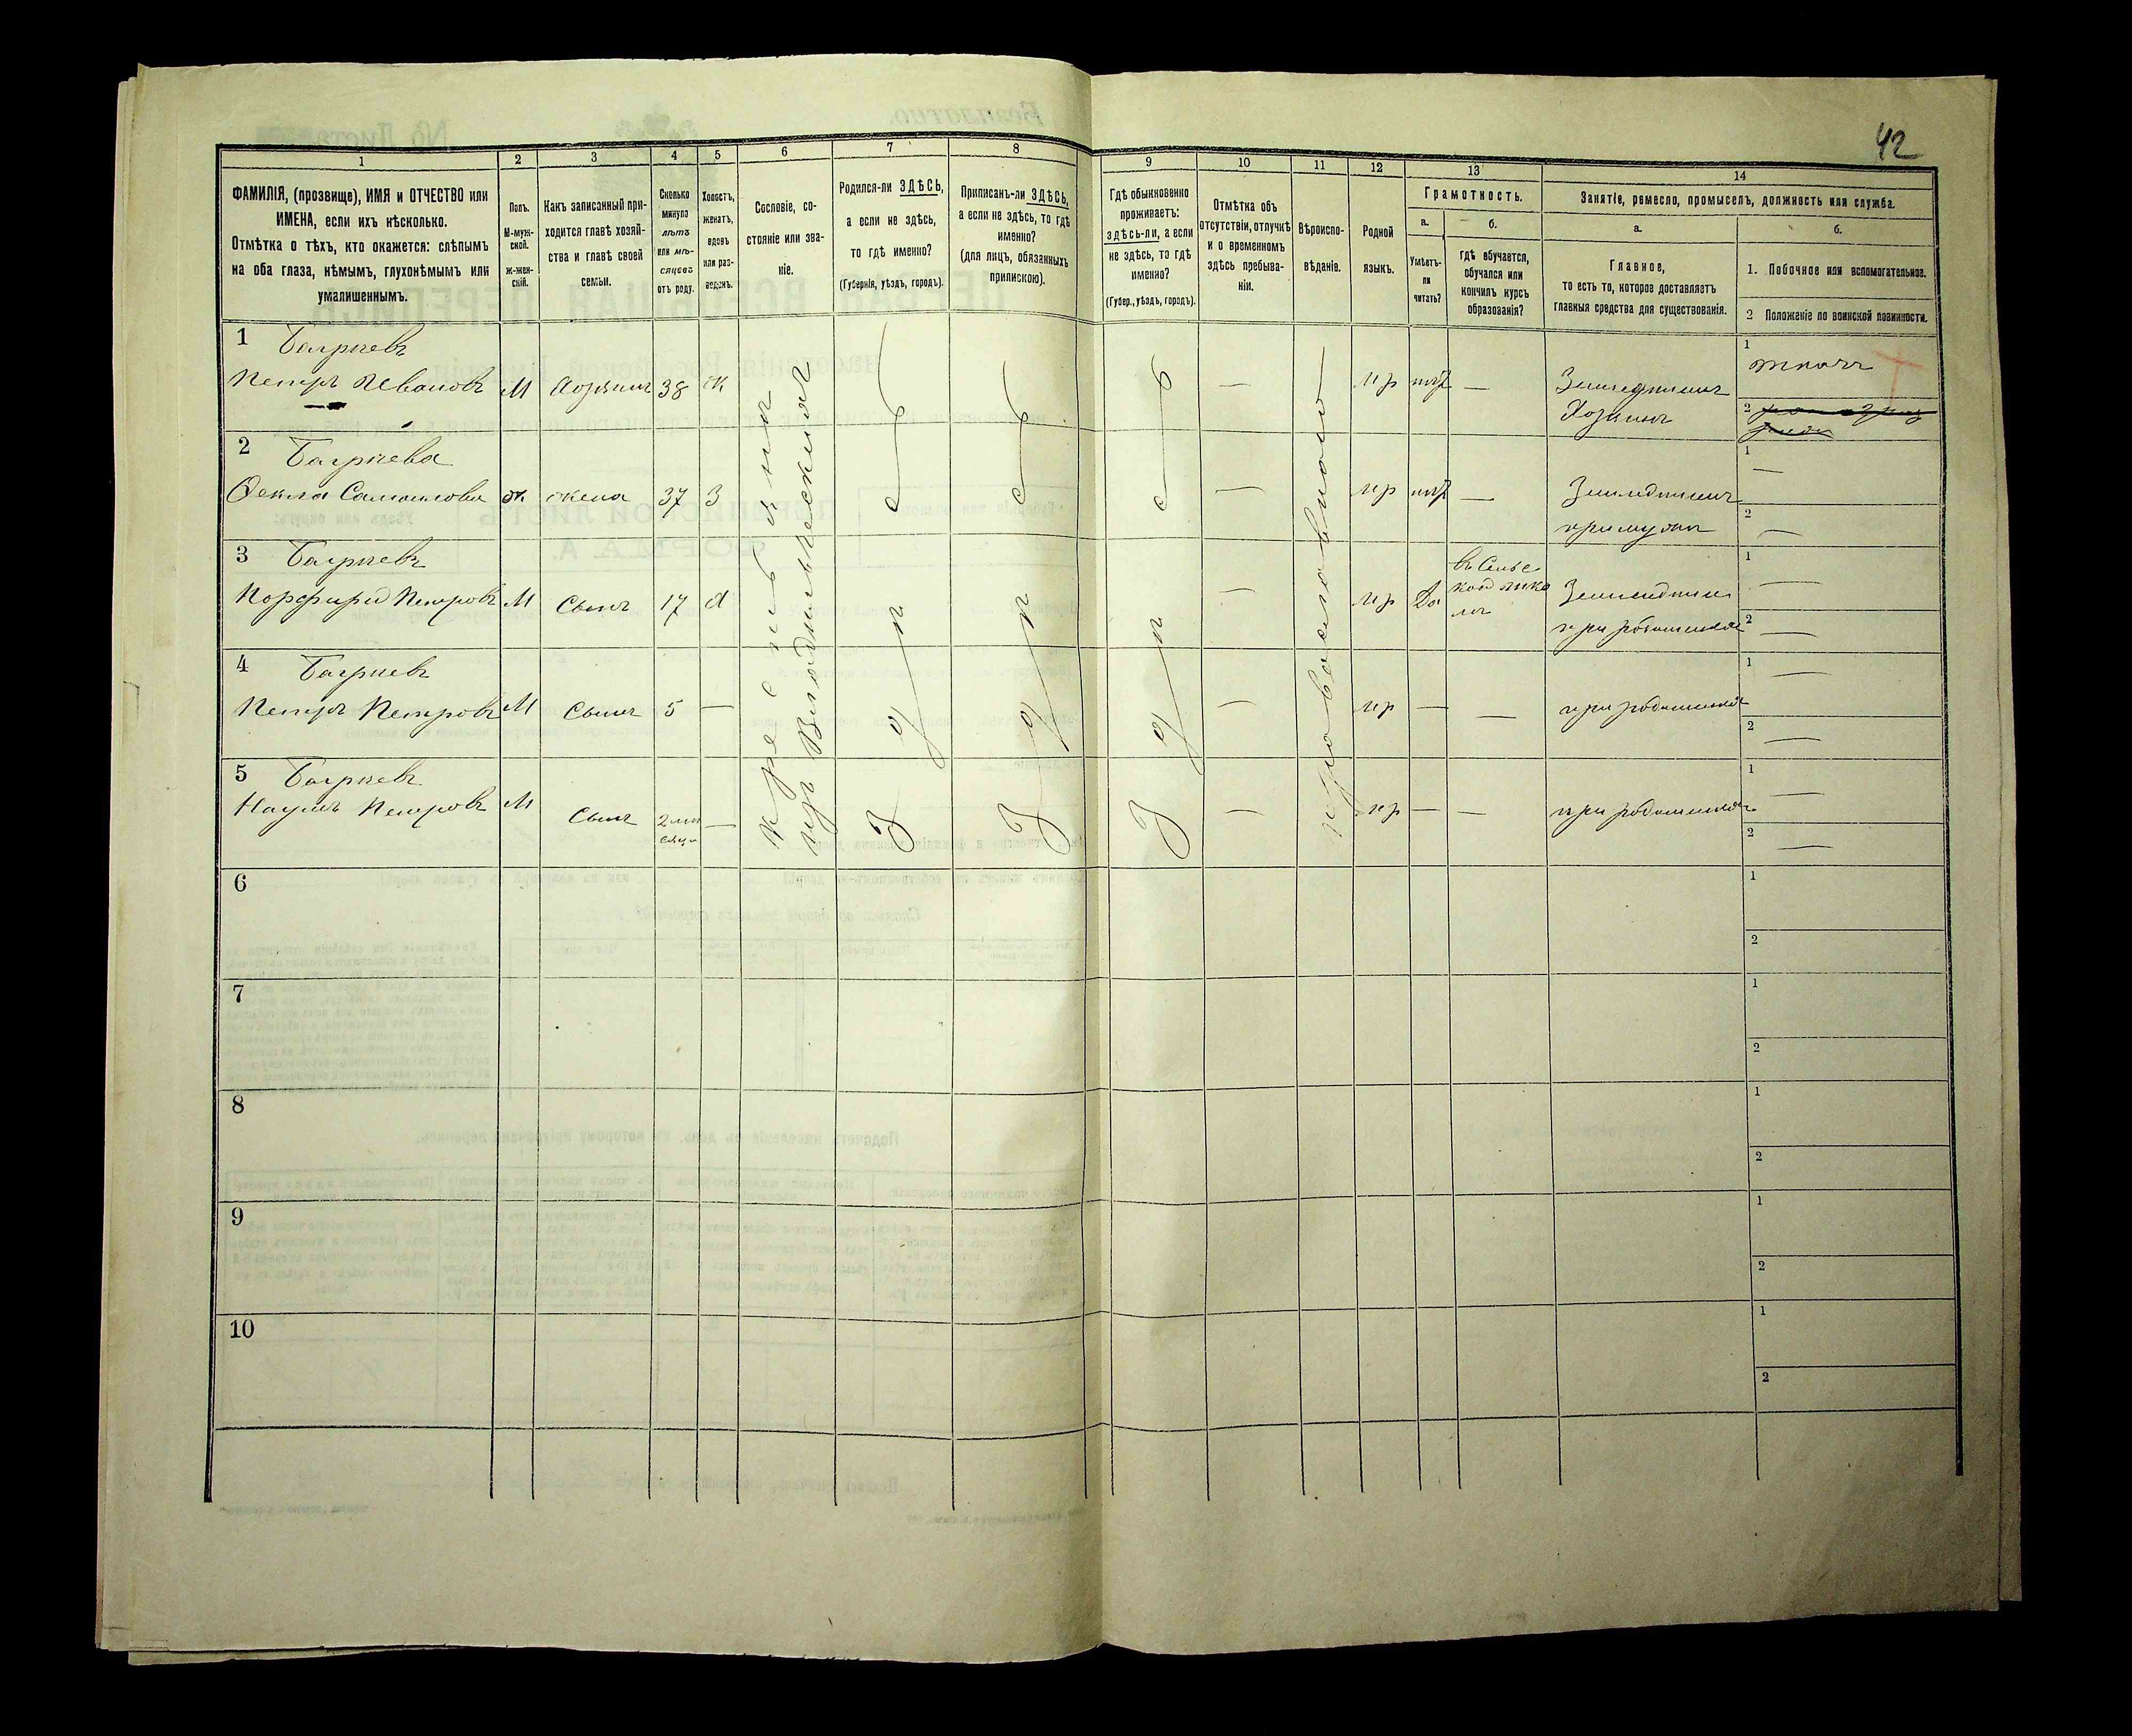 42
1
2
3
4
5
6
7
8
9
10
11
12
13
14
ФАМИЛІЯ, (прозвище), ИМЯ и ОТЧЕСТВО или
ИМЕНА, если ихъ нѣсколько.
Отмѣтка о тѣхъ, кто окажется: слѣпымъ
на оба глаза, нѣмымъ, глухонѣмымъ или
умалишеннымъ.
Полъ.
М-муж-
ской.
ж-жен-
скій.
Какъ записанный при-
ходится главѣ хозяй-
ства и главѣ своей
семьи.
Сколько
минуло
лѣтъ
или мѣ-
сяцевъ
отъ роду.
Холостъ,
женатъ,
вдовъ
или раз-
веденъ.
Сословіе, со-
стояніе или зва-
ніе.
Родился-ли ЗДѢСЬ,
а если не здѣсь,
то гдѣ именно?
(Губернія, уѣздъ, городъ).
Приписанъ-ли ЗДѢСЬ,
а если не здѣсь, то гдѣ
именно?
(для лицъ, обязанныхъ
припискою).
Гдѣ обыкновенно
проживаетъ:
здѣсь-ли, а если
не здѣсь, то гдѣ
именно?
(Губер., уѣздъ, городъ).
Отмѣтка объ
отсутствіи, отлучкѣ
и о временномъ
здѣсь пребыва-
ніи.
Вѣроиспо-
вѣданіе.
Родной
языкъ.
Грамотность.
а.
б.
Умѣетъ-
ли
читать?
гдѣ обучается,
обучался или
кончилъ курсъ
образованія?
Занятіе, ремесло, промыселъ, должность или служба.
а.
б.
Главное,
то есть то, которое доставляетъ
главныя средства для существованія.
1. Побочное или вспомогательное.
2 Положеніе по воинской повинности.
1 Багрѣевъ
Петръ Ивановъ М Хозяинъ 38 ж
Крестьянинъ
изъ Владѣльческихъ
Здѣсь
Здѣсь
Здѣсь
—
православное
мр нѣт —
Земледѣлецъ
Хозяинъ
1 ткачъ
2
2 Багрѣева
Ѳекла Самойлова ж жена 37 З — мр нѣт —
Земледѣлецъ
при мужѣ
1 —
2 —
3 Багрѣевъ
Порфирій Петровъ М Сынъ 17 Х — мр Да
въ Сельс
кой шко
лѣ
Земледѣлец
при родителях
1 —
2 —
4 Багрѣевъ
Петръ Петровъ М Сынъ 5 — — мр — — при родителях
1 —
2 —
5 Багрѣевъ
Наумъ Петровъ М Сынъ 2 мѣ
сяца — — мр — — при родителях
1 —
2 —
6
1
2
7
1
2
8
1
2
9
1
2
10
1
2